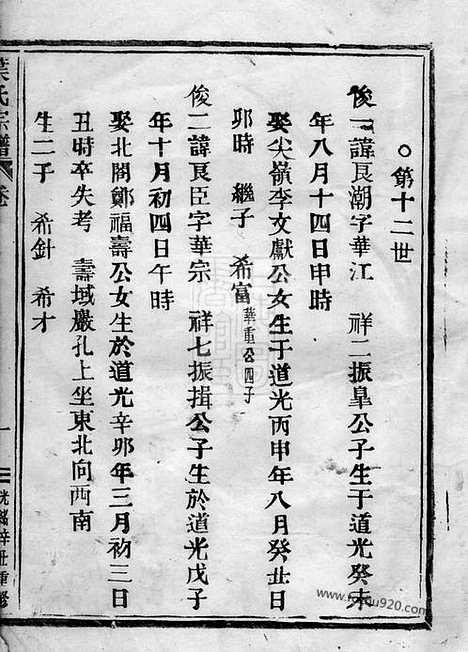 ○第十二世
俊一諱良潮字華江 祥二振臯公子生于道光癸未
年八月十四日申時
娶尖嶺李文獻公女生于道光丙申年八月癸丑日
卯時 繼子 希富華重公四子
俊二諱良臣字華宗 祥七振揖公子生於道光戊子
年十月初四日午時
娶北閣鄭福壽公女生於道光辛卯年三月初三日
丑時卒失考 壽域嚴孔上坐東北向西南
生二子 希針 希才
葉氏宗譜 卷
一
光緒辛丑重修
www.touqu920.com